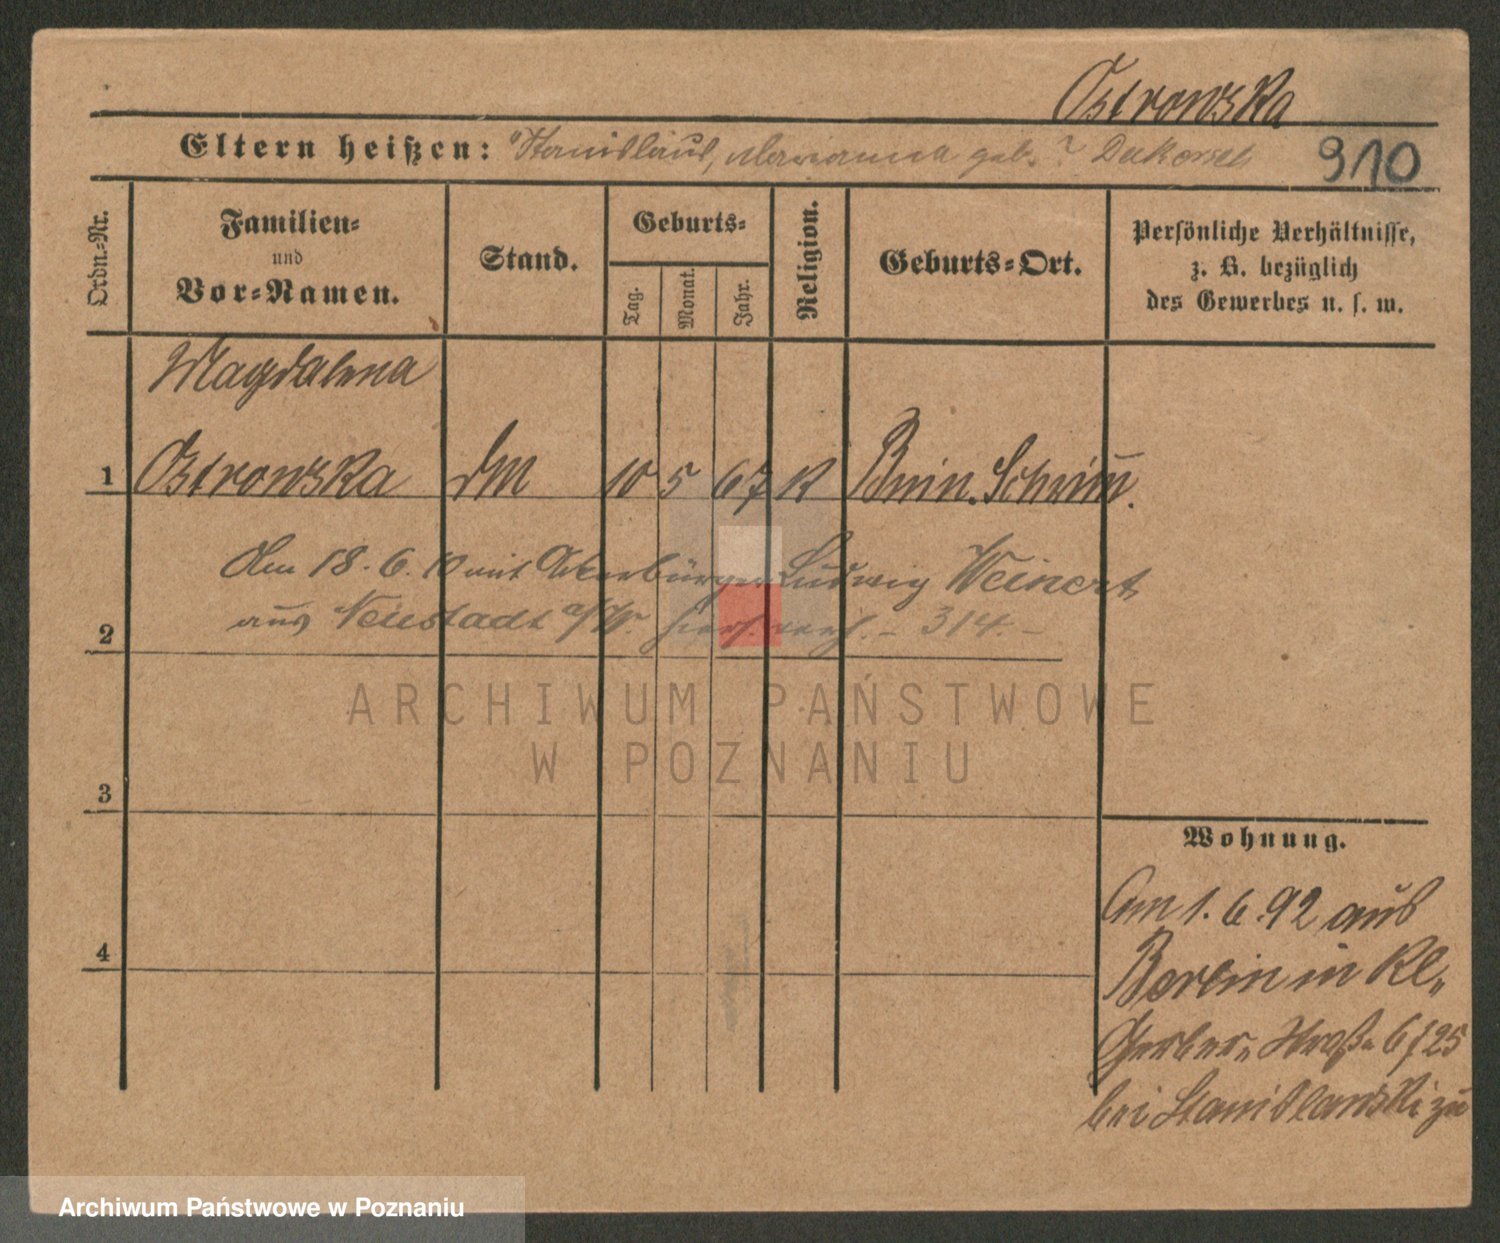 Ostrowska
Eltern heißen: Stanislaus, Marianna geb. ?
910
Ordn.-Nr.
Familien-
und
Vor-Namen.
Stand.
Geburts-
Tag.
Monat.
Jahr.
Religion.
Geburts-Ort.
Persönliche Verhältnisse,
z. B. bezüglich
des Gewerbes u. s. w.
Magdalena
1 Ostrowska dM 10 5 67 K Bnin. Schrim.
Am 18. 6. 10 mit Ackerbürger Ludwig Weinert
2 aus Neustadt a/W. hiers. verh. - 314. -
3
4
Wohnung.
Am 1. 6. 92 aus
Berlin in Kl.
Gerber Straße 6/25
bei Stanislawski zu
ARCHIWUM PAŃSTWOWE
W POZNANIU
Archiwum Państwowe w Poznaniu